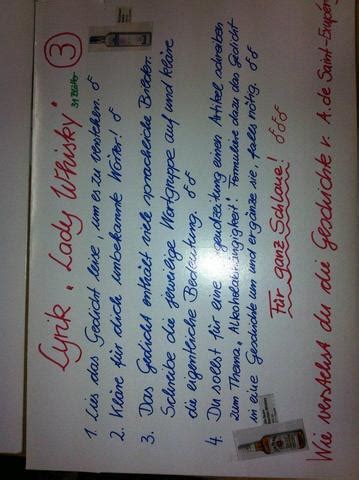 Lyrik "Lady Whisky"
31 Blätter
3
1. Lies das Gedicht leise, um es zu verstehen. ♂
2. Kläre für dich unbekannte Wörter! ♂
3. Das Gedicht enthält viele sprachliche Bilder.
Schreibe die jeweilige Wortgruppe auf und kläre
die eigentliche Bedeutung. ♂♂
4. Du sollst für eine Jugendzeitung einen Artikel schreiben
zum Thema "Alkoholabhängigkeit". Formuliere dazu das Gedicht
in eine Geschichte um und ergänze sie, falls nötig. ♂♂
Für ganz Schlaue! ♂♂♂
Wie verstehst du die Geschichte v. A. de Saint-Exupér